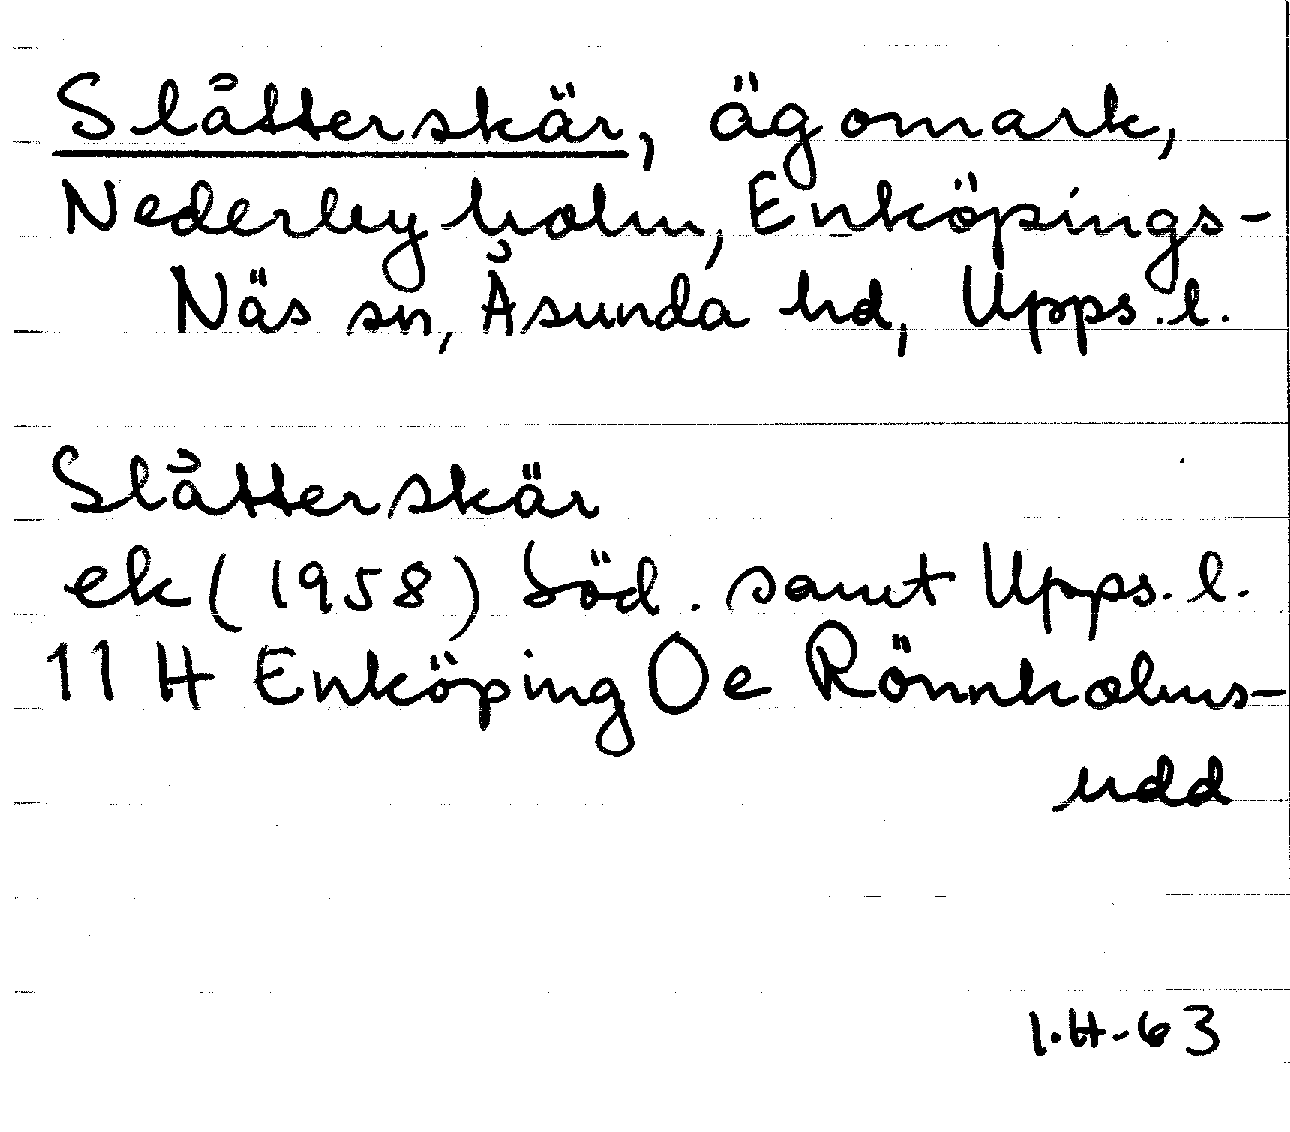 Slåtterskär, ägomark,
Nederleyholm, Enköpings-
Näs sn, Åsunda hd, Upps.l.
Slåtterskär
ek (1958) Söd. samt Upps. l.
11 H Enköping Oe Rönnholms-
udd
I.H-63